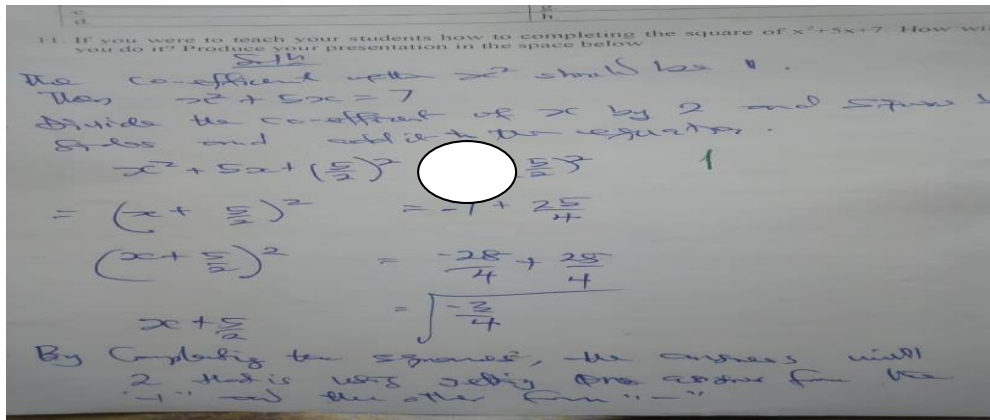 c
g.
d
h
11. If you were to teach your students how to completing the square of x²+5x+7. How
you do it? Produce your presentation in the space below
Soln
The co-efficient of the x² should be 1.
Then x² + 5x = 7
Divide the co-efficient of x by 2 and square
and add it to the equation.
x² + 5x + (5/2)² 5/2)² 1
= (x + 5/2)² = -7 + 25/4
(x + 5/2)² = -28/4 + 25/4
x + 5/2 = √-3/4
By Completing the squares, the answers will
2 that is using getting one answer from the
"+" and the other from "-"